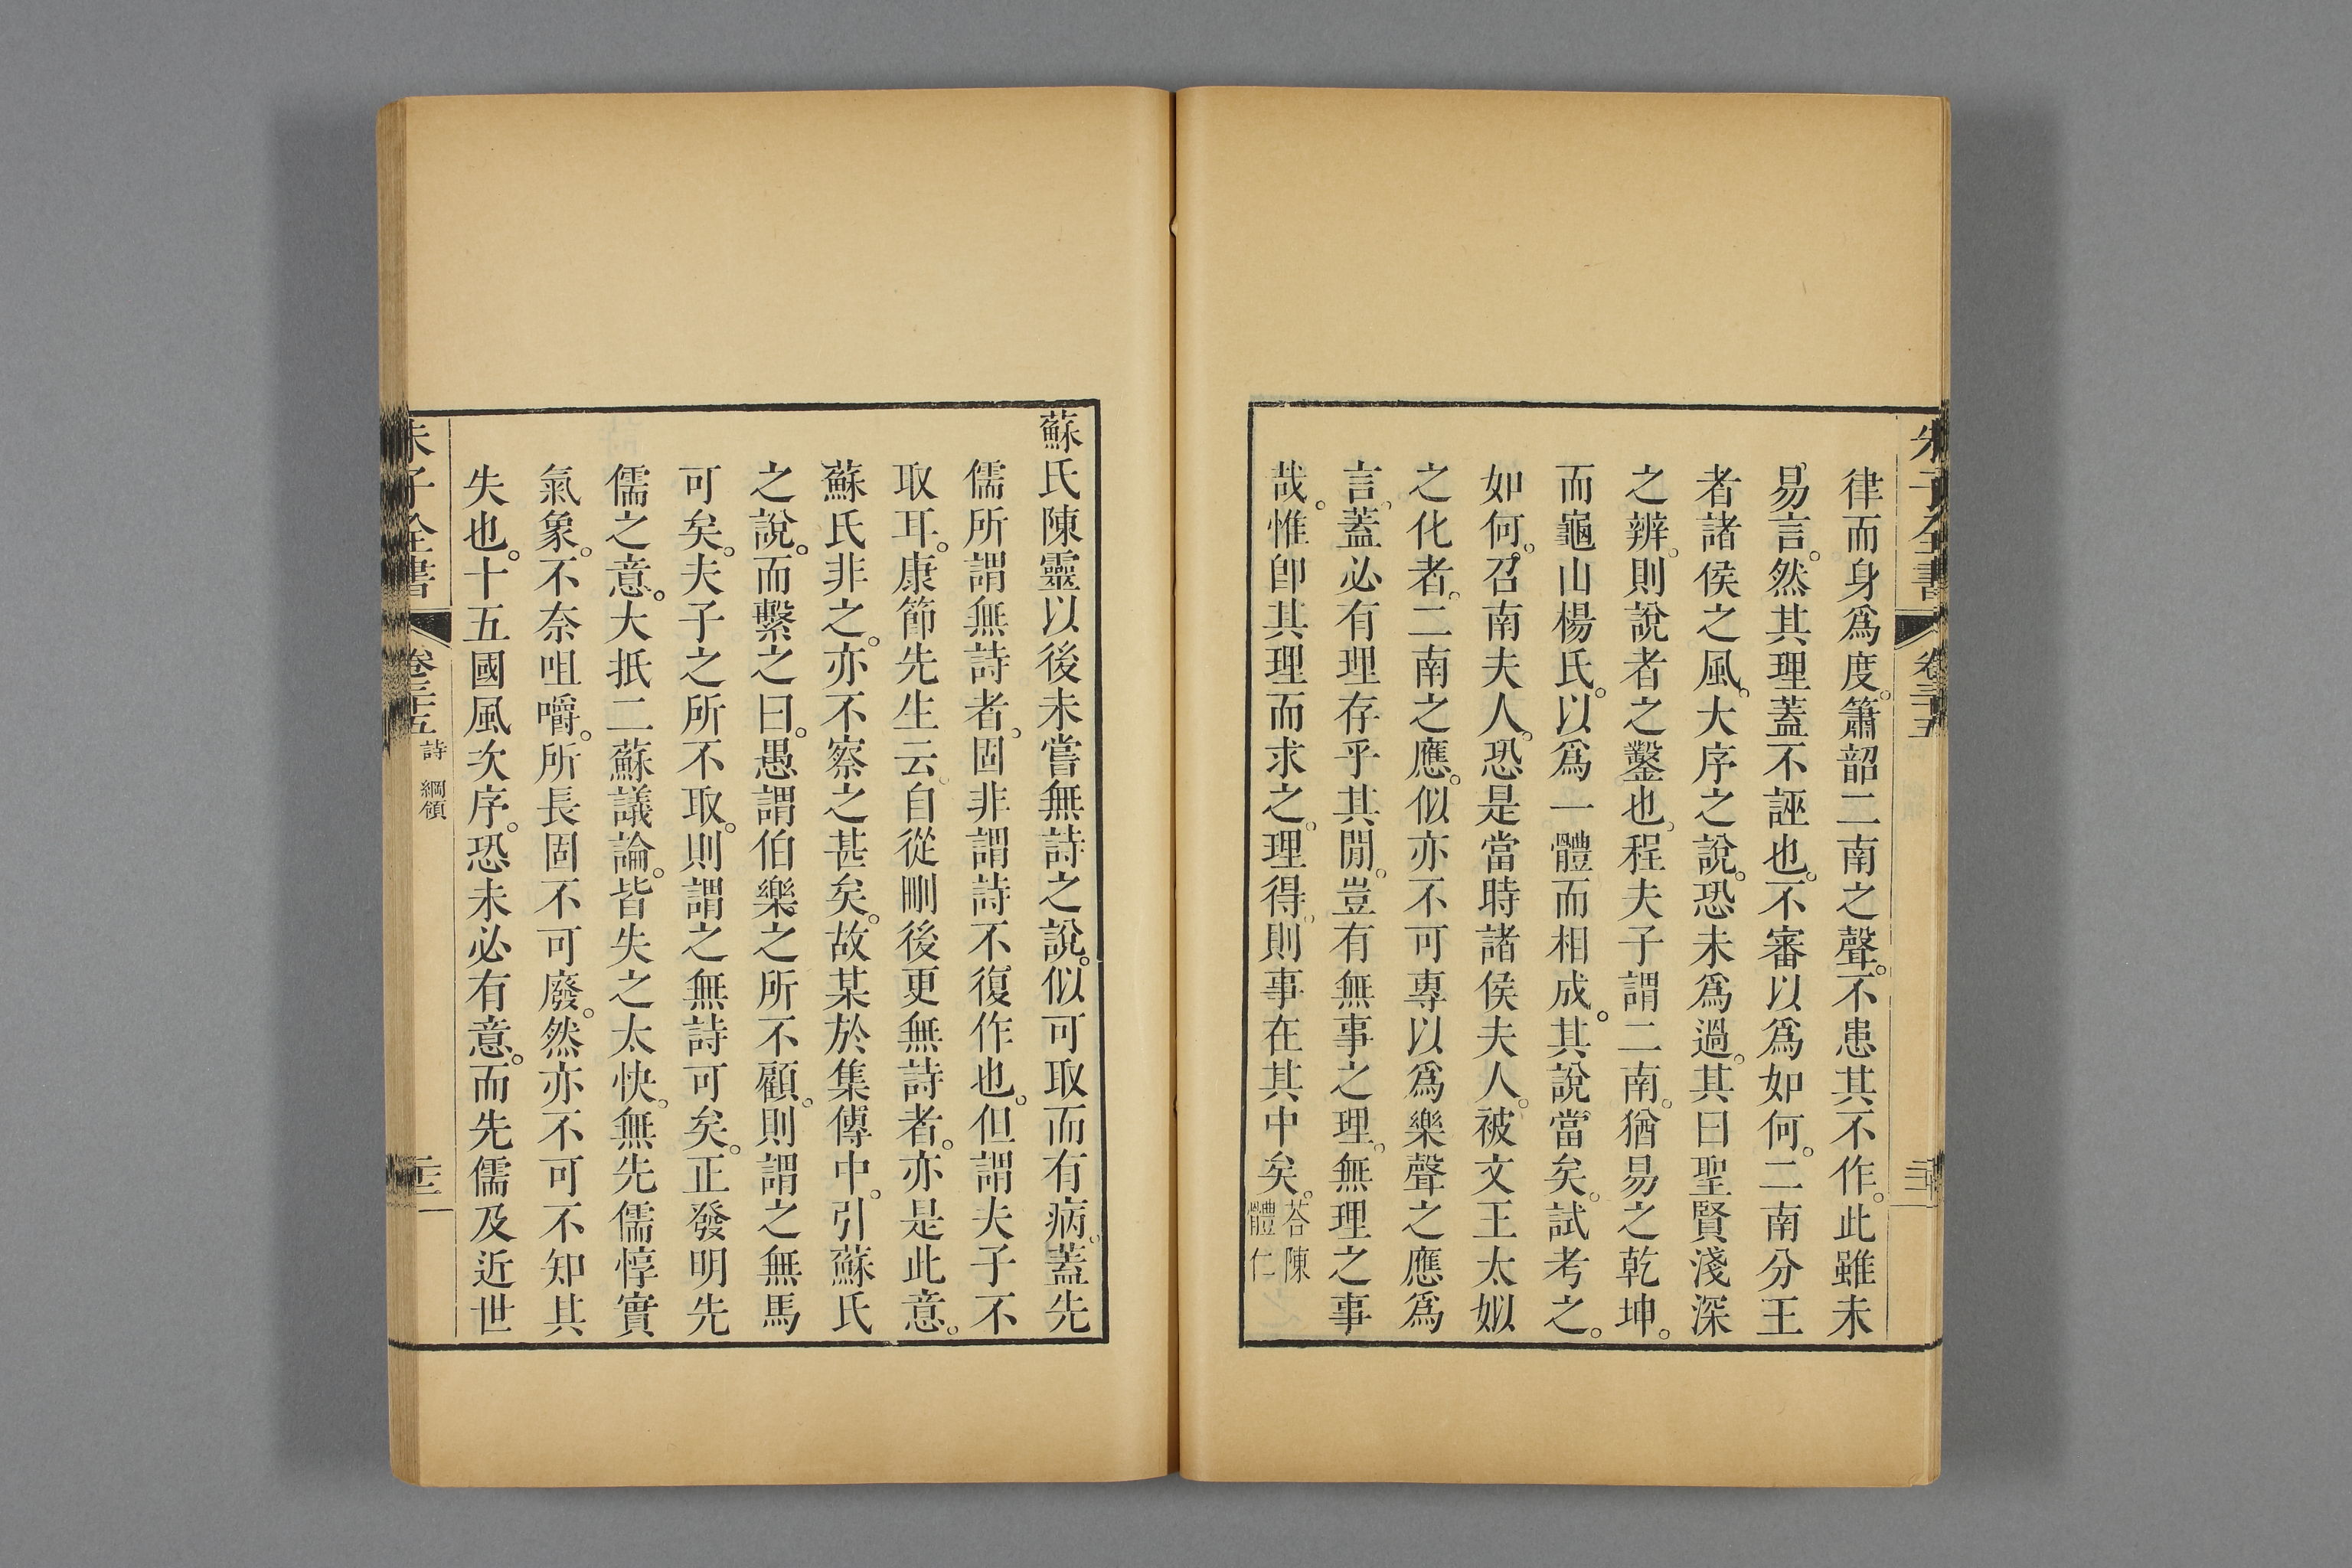 朱子全書 卷三十五
律而身爲度。簫韶二南之聲。不患其不作。此雖未
易言。然其理蓋不誣也。不審以爲如何。二南分王
者諸侯之風。大序之說。恐未爲過。其曰聖賢淺深
之辨。則說者之鑿也。程夫子謂二南。猶易之乾坤。
而龜山楊氏。以爲一體而相成。其說當矣。試考之。
如何。召南夫人。恐是當時諸侯夫人。被文王太姒
之化者。二南之應。似亦不可專以爲樂聲之應爲
言。蓋必有理存乎其閒。豈有無事之理。無理之事
哉。惟卽其理而求之。理得。則事在其中矣。荅陳體仁
蘇氏陳靈以後未嘗無詩之說。似可取而有病。蓋先
儒所謂無詩者。固非謂詩不復作也。但謂夫子不
取耳。康節先生云。自從刪後更無詩者。亦是此意。
蘇氏非之。亦不察之甚矣。故某於集傳中。引蘇氏
之說。而繫之曰。愚謂伯樂之所不顧。則謂之無馬
可矣。夫子之所不取。則謂之無詩可矣。正發明先
儒之意。大抵二蘇議論。皆失之太快。無先儒惇實
氣象。不奈咀嚼。所長固不可廢。然亦不可不知其
失也。十五國風次序。恐未必有意。而先儒及近世
朱子全書 卷三十五 詩 綱領